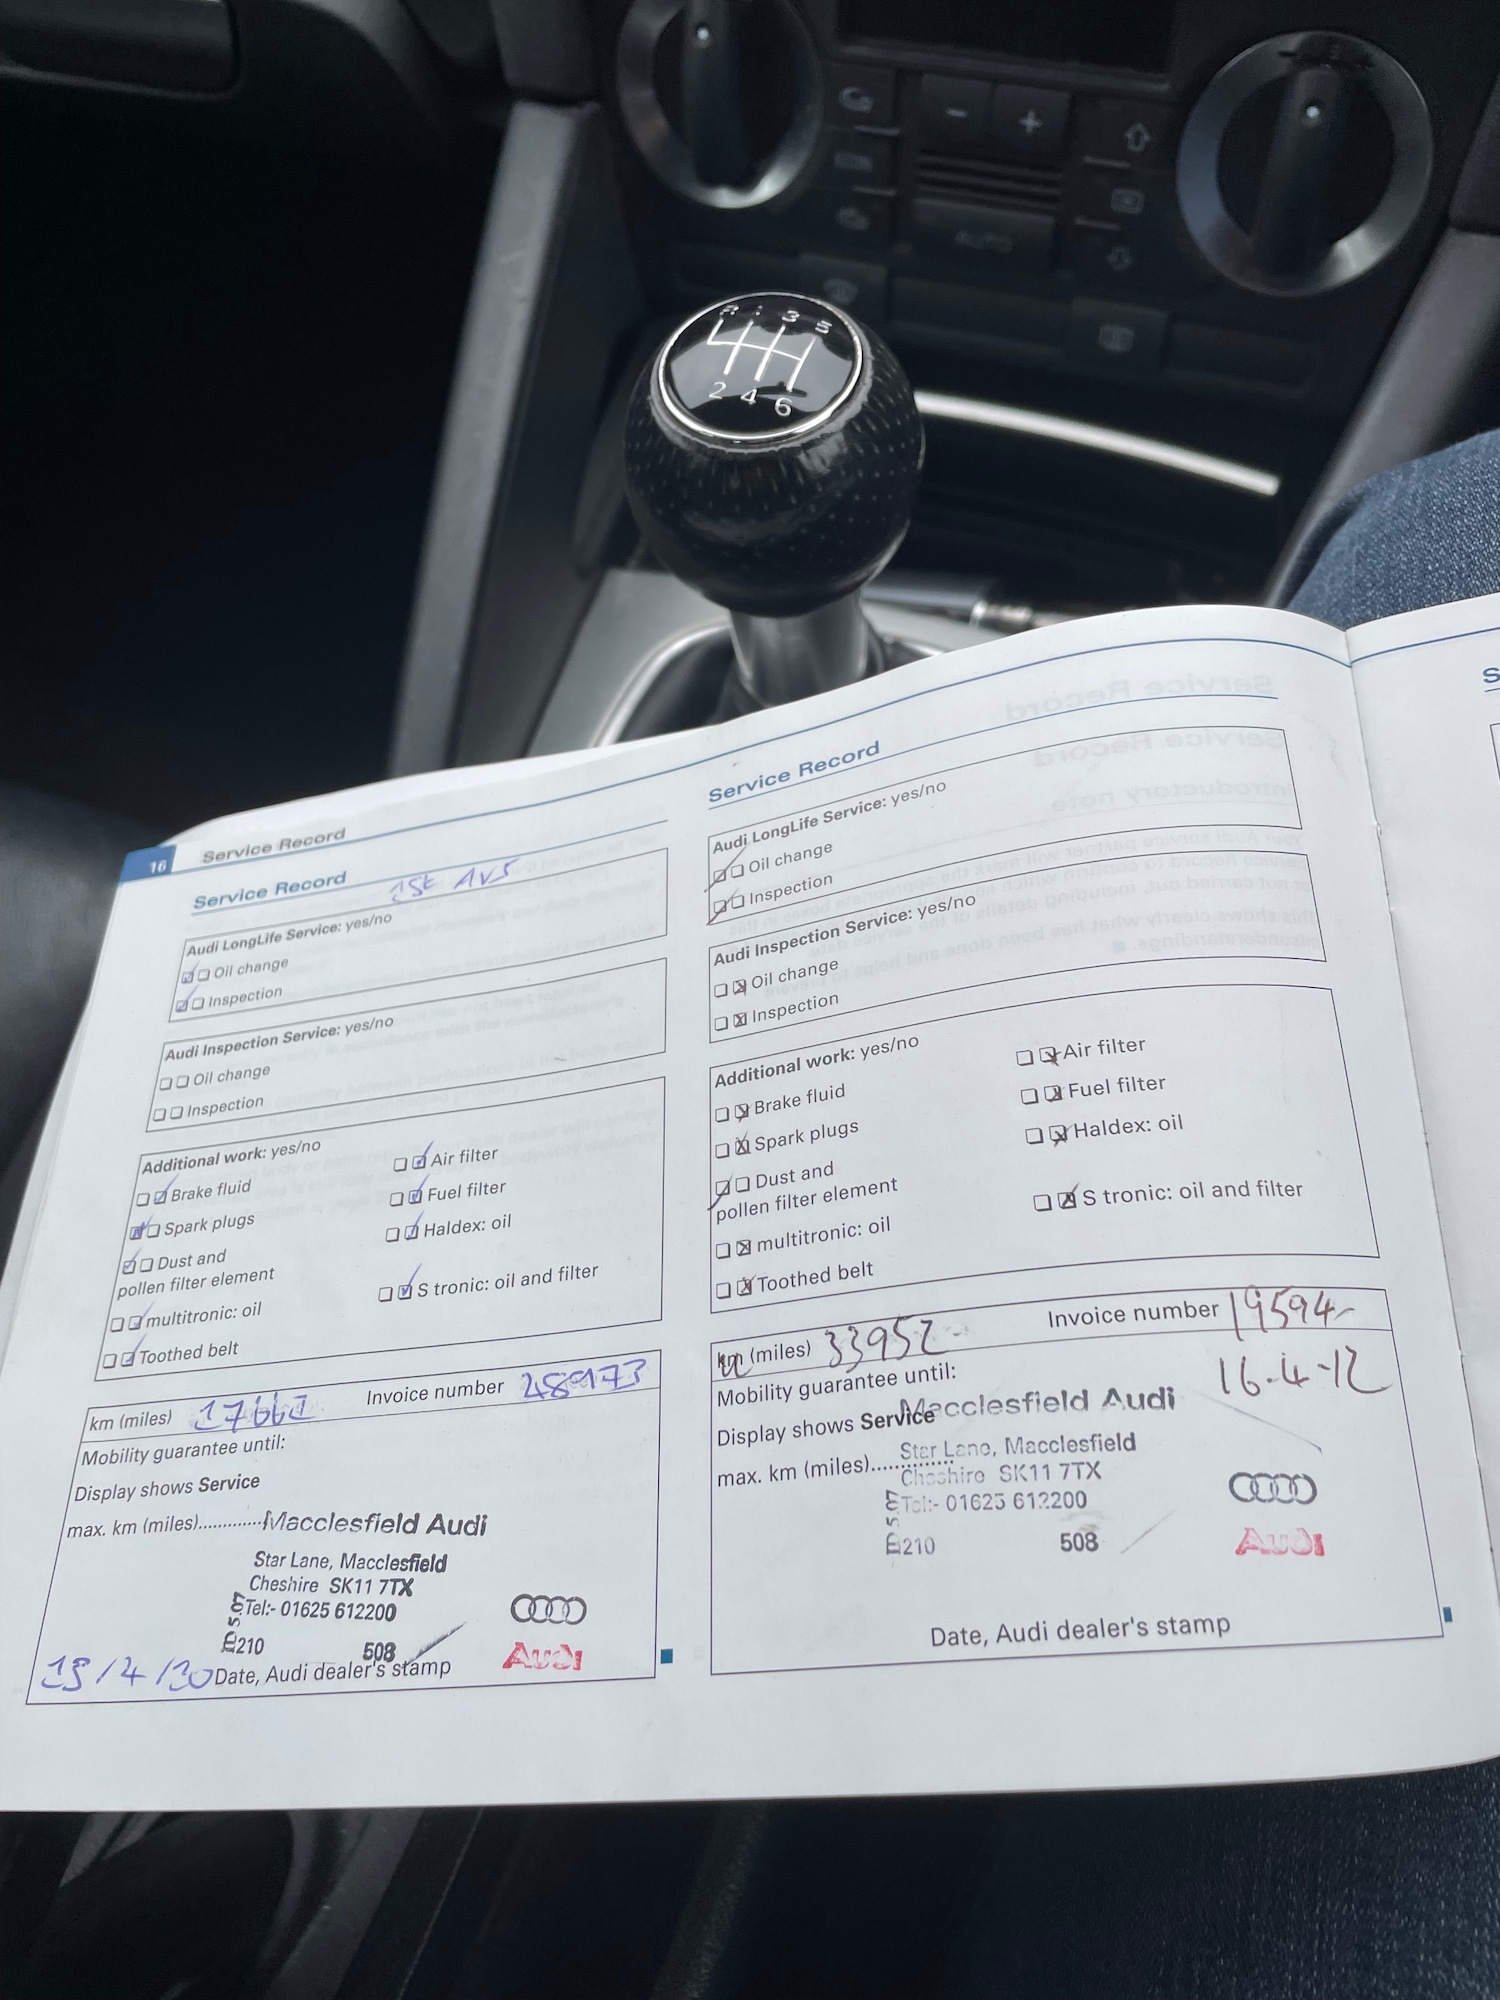 AUTO
3 5
2 4 6
16 Service Record
Service Record 1st AVS
Audi LongLife Service: yes/no
Oil change
Inspection
Audi Inspection Service: yes/no
Oil change
Inspection
Additional work: yes/no
Brake fluid
Spark plugs
Dust and
pollen filter element
multitronic: oil
Toothed belt
Air filter
Fuel filter
Haldex: oil
S tronic: oil and filter
km (miles) 17661 Invoice number
Mobility guarantee until:
Display shows Service
max. km (miles).............Macclesfield Audi
Star Lane, Macclesfield
Cheshire SK11 7TX
Tel:- 01625 612200
210 508
Audi
Date, Audi dealer's stamp
Service Record
Audi LongLife Service: yes/no
Oil change
Inspection
Audi Inspection Service: yes/no
Oil change
Inspection
Additional work: yes/no
Brake fluid
Spark plugs
Dust and
pollen filter element
multitronic: oil
Toothed belt
Air filter
Fuel filter
Haldex: oil
S tronic: oil and filter
km (miles) 33952 Invoice number 19594
Mobility guarantee until: 16.4.12
Display shows Service Macclesfield Audi
max. km (miles)............. Star Lane, Macclesfield
Cheshire SK11 7TX
Tel:- 01625 612200
210 508
Audi
Date, Audi dealer's stamp